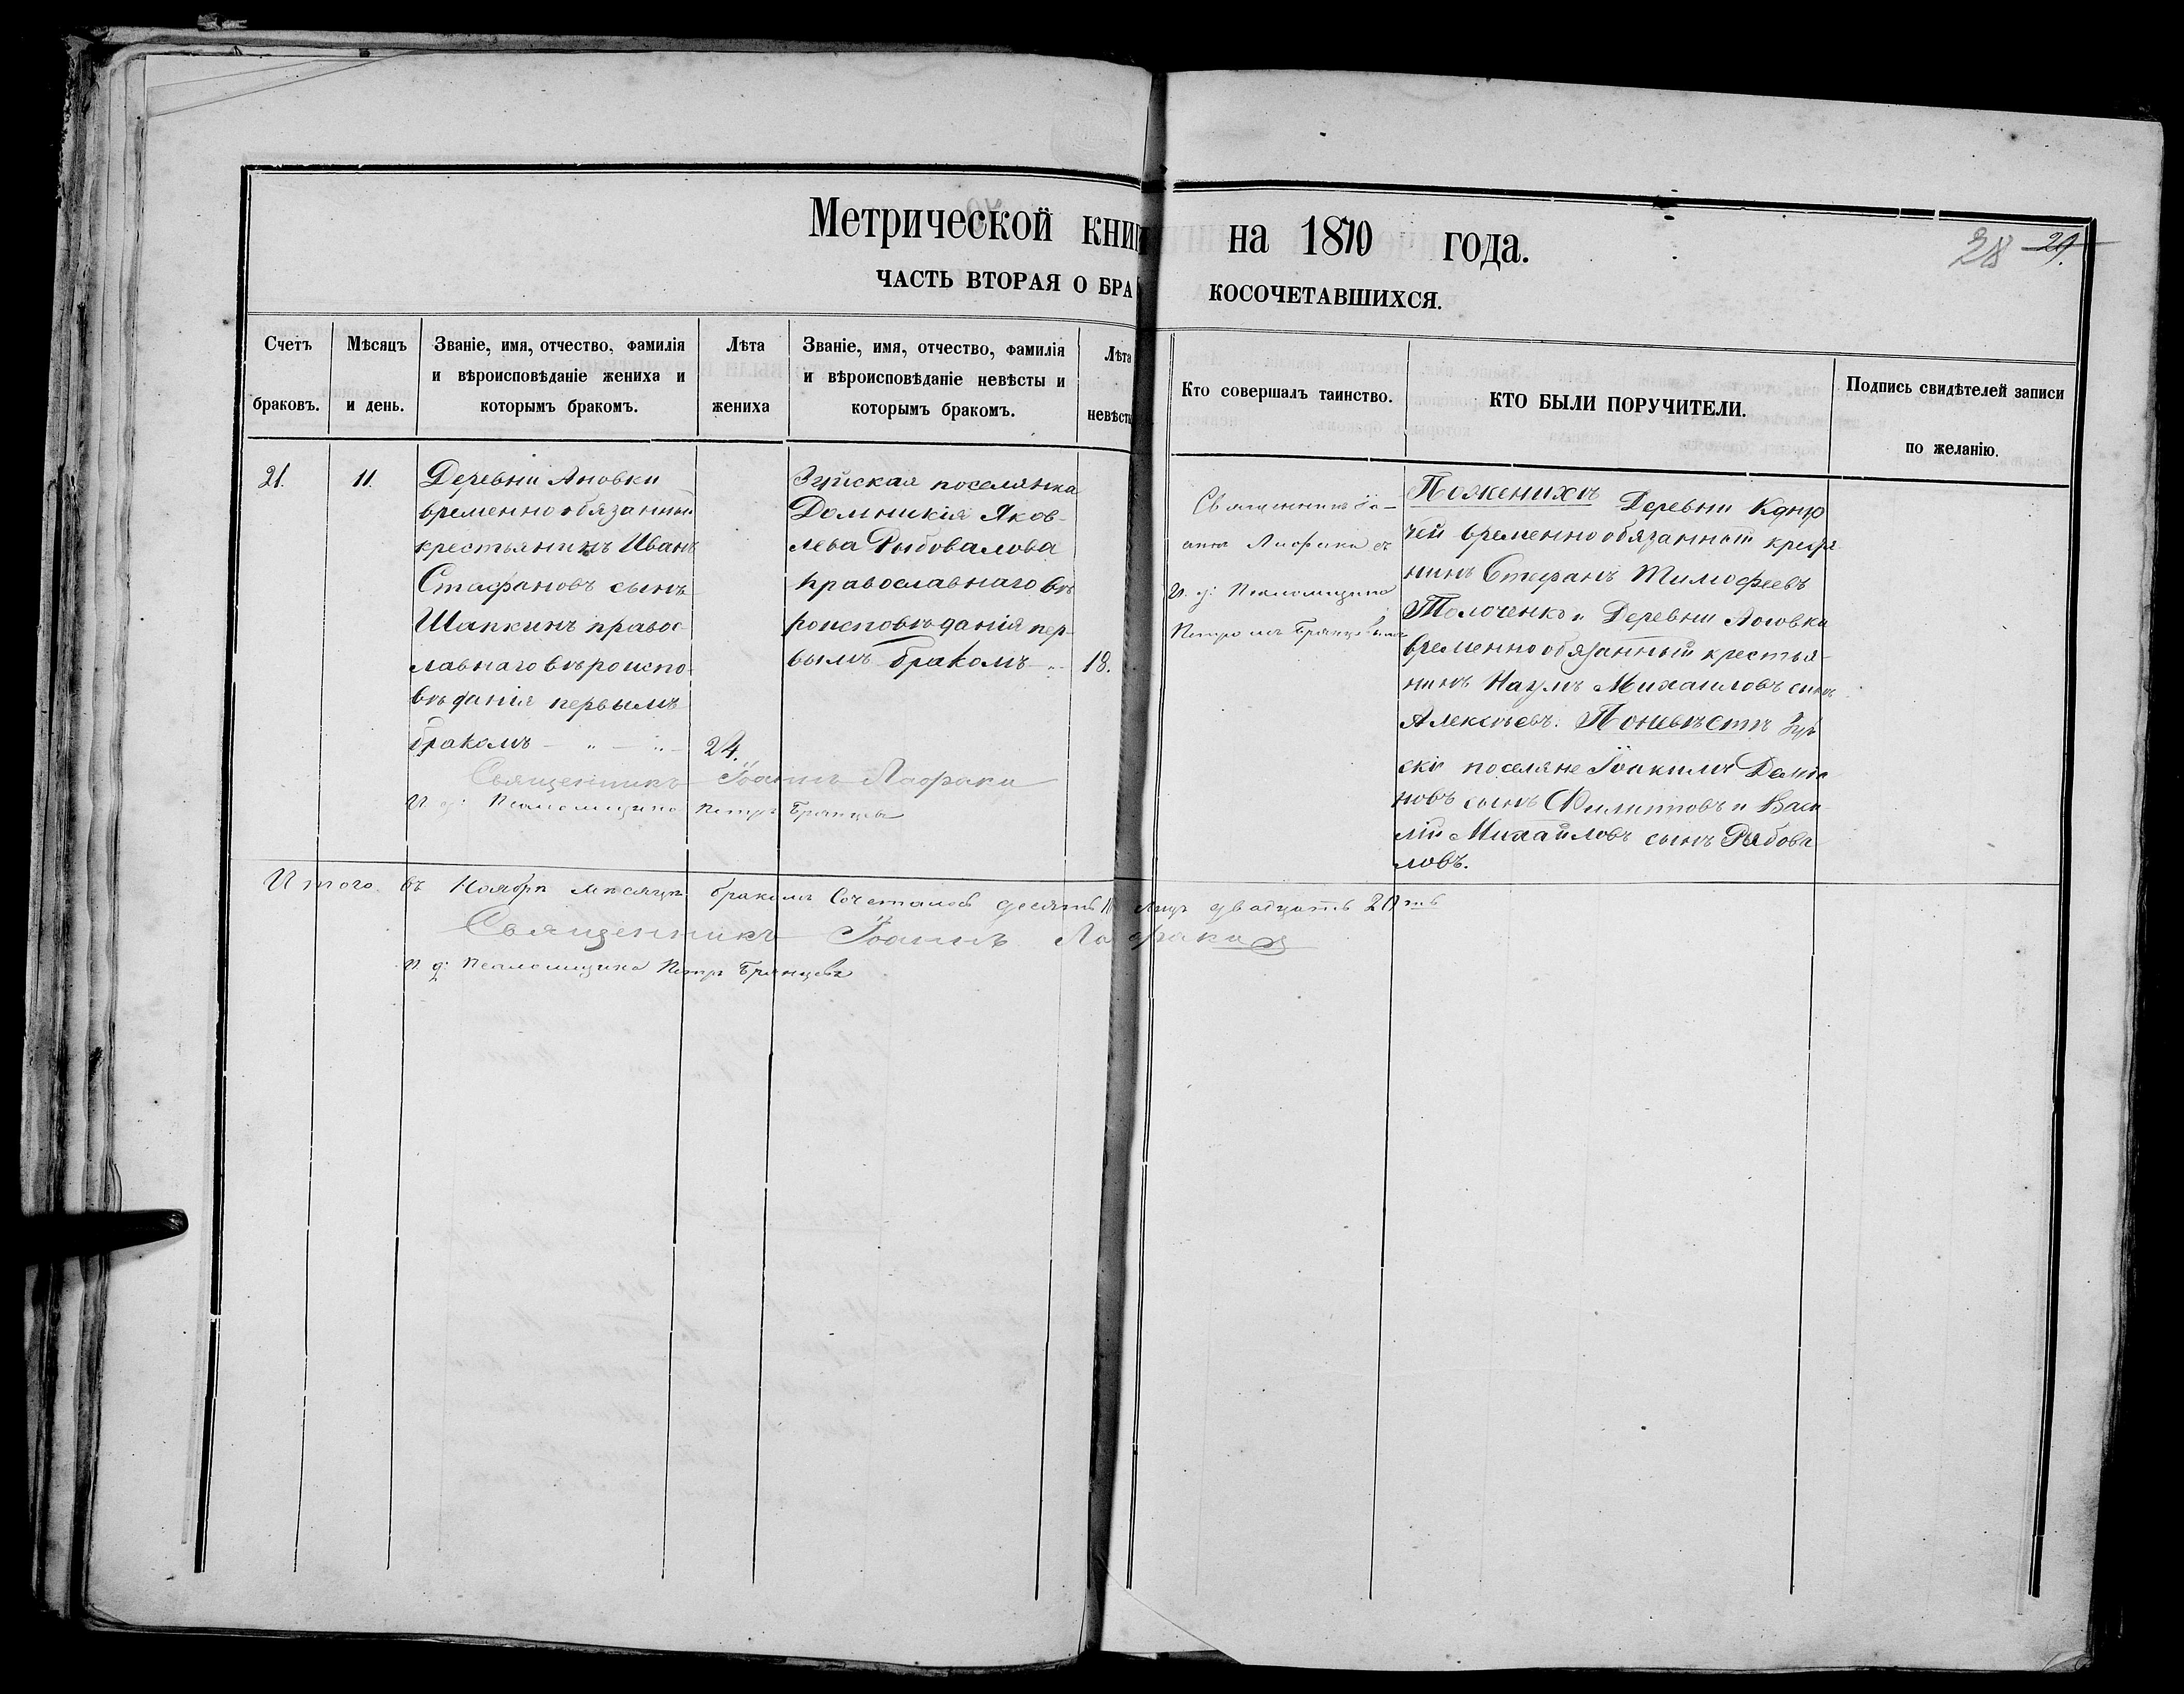 Метрической книги на 1870 года.
28 29.
ЧАСТЬ ВТОРАЯ О БРАКОСОЧЕТАВШИХСЯ.
Счетъ браковъ.
Мѣсяцъ и день.
Званіе, имя, отчество, фамилія
и вѣроисповѣданіе жениха и
которымъ бракомъ.
Лѣта
жениха
Званіе, имя, отчество, фамилія
и вѣроисповѣданіе невѣсты и
которымъ бракомъ.
Лѣта
невѣсты
Кто совершалъ таинство.
КТО БЫЛИ ПОРУЧИТЕЛИ.
Подпись свидѣтелей записи
по желанію.
21.
11.
Деревни Ановки
временнообязанный
крестьянинъ Иванъ
Стефановъ сынъ
Шапкинъ правос-
лавнаго вѣроиспо-
вѣданія первымъ
бракомъ
24.
Зуйская поселянка
Домникія Яков-
лева Рыбовалова
православнаго вѣ
роисповѣданія пер-
вымъ бракомъ
18.
Священникъ Іо-
аннъ съ
И. д: Псаломщика
Петромъ Брянцевымъ
По женихѣ Деревни
чей временнообязанный крестья
нинъ Стефанъ Тимофеевъ
Толоченко и Деревни Ановки
временнообязанный крестья-
нинъ Наумъ Михаиловъ сынъ
Алексѣевъ. По невѣстѣ Зуй
скіе поселяне Іоакимъ
новъ сынъ Филиповъ и Васи
лій Михайловъ сынъ Рыбова
ловъ.
Священникъ Іоаннъ
И. д: Псаломщика Петръ Брянцевъ
Итого въ Ноябрѣ мѣсяцѣ бракомъ сочеталось десять лицъ двадцать 20ть
Священникъ Іоаннъ
И. д: Псаломщика Петръ Брянцевъ